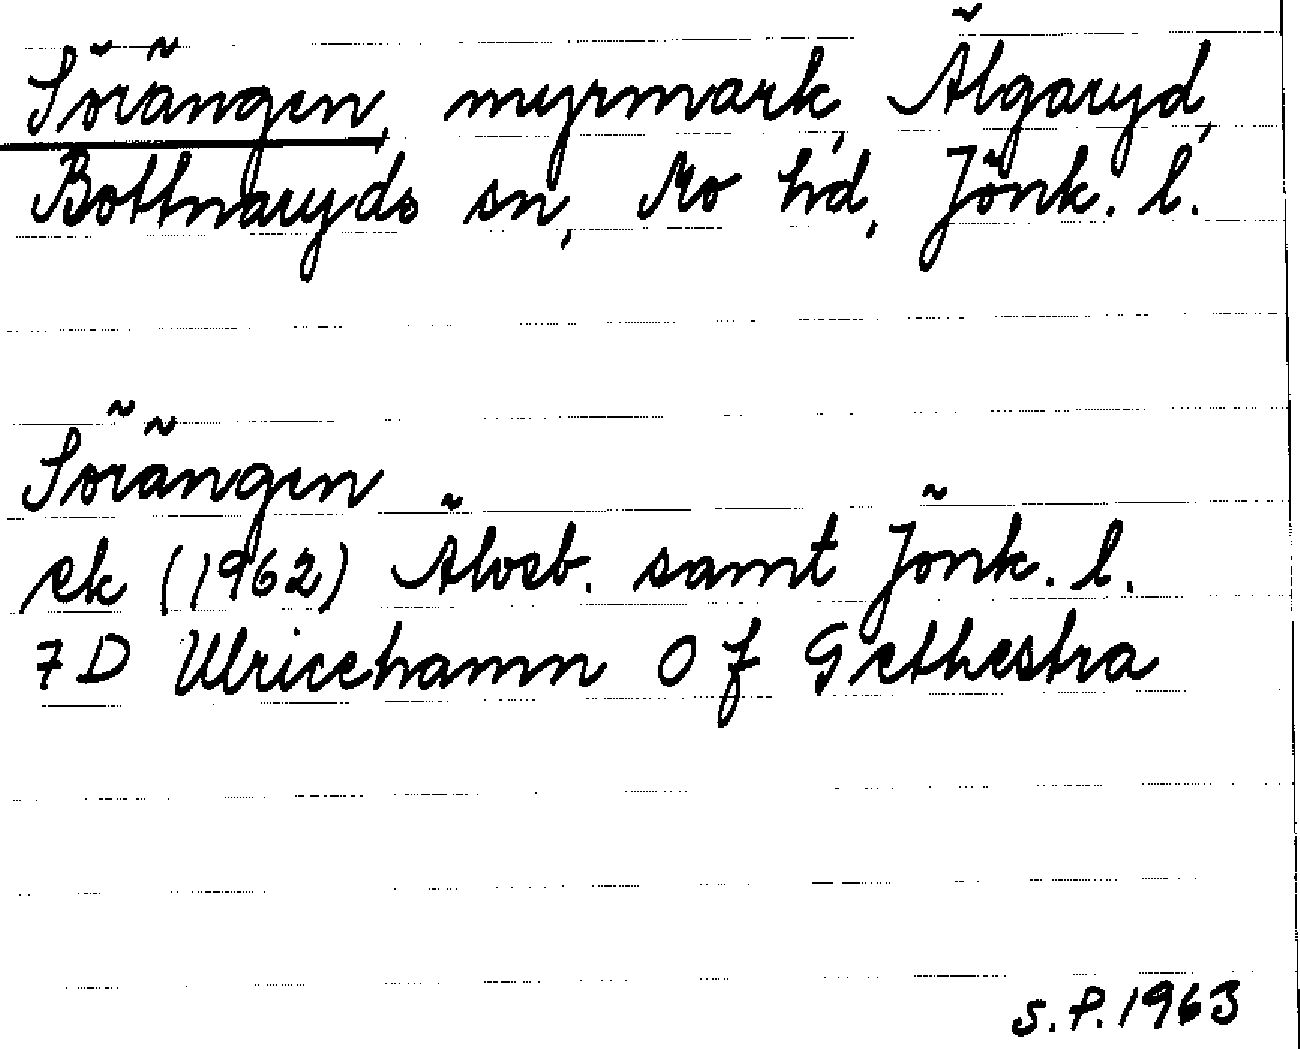 Sörängen, myrmark, Älgaryd,
Bottnaryds sn, Mo hd, Jönk. l.
Sörängen
ek (1962) Älvsb. samt Jönk. l.
7 D Ulricehamn 0 f Gethestra
S. P. 1963